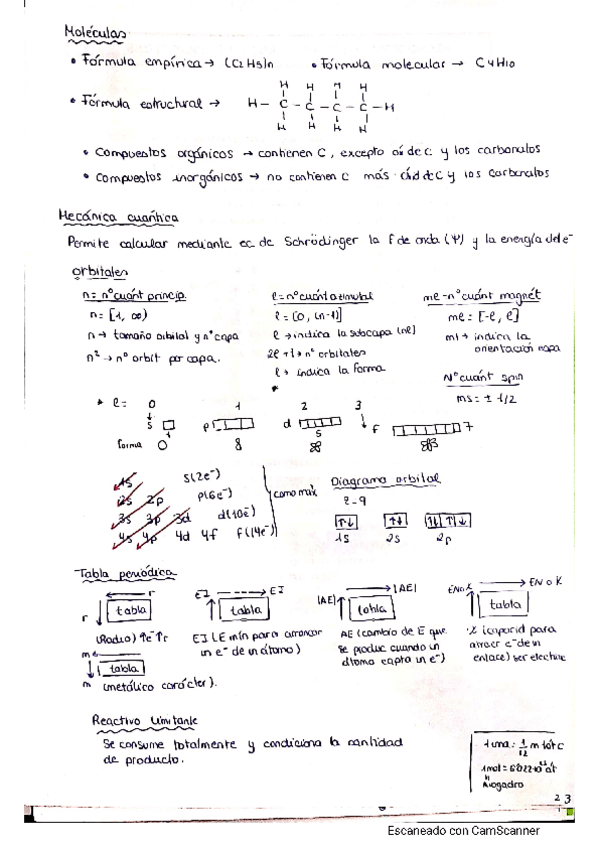 Moléculas
• Fórmula empírica → (C2H5)n • Fórmula molecular → C4H10
H H H H
• Fórmula estructural → H - C - C - C - C - H
H H H H
• Compuestos orgánicos → contienen C, excepto óxi de C y los carbonatos
• Compuestos inorgánicos → no contienen C más óxid de C y los carbonatos
Mecánica cuántica
Permite calcular mediante ec de Schrödinger la f de onda (Ψ) y la energía del e-
orbitales
n = nº cuánt princip l = nº cuánt azimutal ml - nº cuánt magnét
n = [1, ∞) l = [0, (n-1)] ml = [-l, l]
n → tamaño orbital y nº capa l → indica la subcapa (nl) ml → indica la
n² → nº orbit por capa. 2l + 1 → nº orbitales orientación
l → indica la forma
Nº cuánt spin
ms = ± 1/2
• l = 0 1 2 3
s p d f 7
5
forma
1s s(2e-)
2s 2p p(6e-) como máx Diagrama orbital
3s 3p 3d d(10e-)
4s 4p 4d 4f f(14e-)
↑↓ ↑↓ ↑↓ ↑↓
1s 2s 2p
Tabla periódica
r EI EI |AE| |AE| EN o X EN o X
r tabla tabla tabla tabla
(Radio) ↑e- ↑r EI (E mín para arrancar AE (cambio de E que
un e- de un átomo) se produc cuando un
átomo capta un e-)
X (capacid para
atraer e- de un
enlace) ser electune
me
tabla
m (metálico carácter).
Reactivo limitante
Se consume totalmente y condiciona la cantidad
de producto.
1 uma = 1/12 m tot C
1 mol = 6'022·10²³ át
Avogadro
23
Escaneado con CamScanner